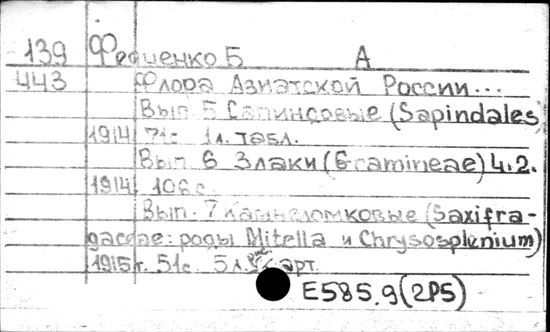 139 Федченко Б А
443 Флора Азиатской России...
Вып 5 Сапиндовые (Sapindales)
1914 71с 1л. табл.
Вып 6 Злаки (Gramineae) ч.2.
1914 108 с.
Вып. 7 Камнеломковые (Saxifra-
gaceae: роды Mitella и Chrysosplenium)
1915г. 51с. 5л. карт.
E585.9(2P5)